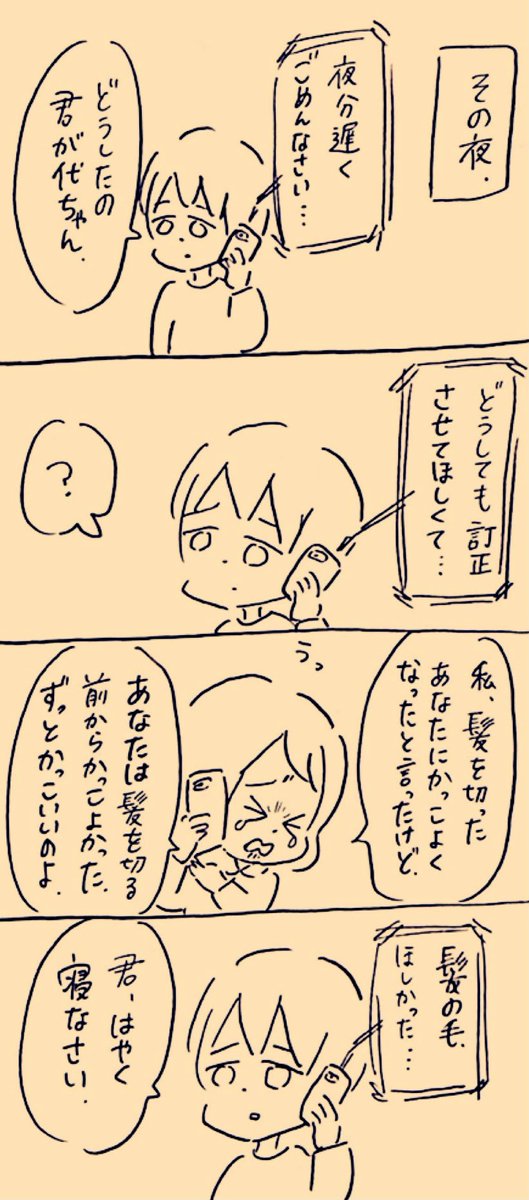 その夜.
夜分遅く
ごめんなさい…
どうしたの
君が代ちゃん.
どうしても訂正
させてほしくて…
?
私、髪を切った
あなたにかっこよく
なったと言ったけど.
うっ
あなたは髪を切る
前からかっこよかった.
ずっとかっこいいのよ.
髪の毛.
ほしかった…
君、はやく
寝なさい.